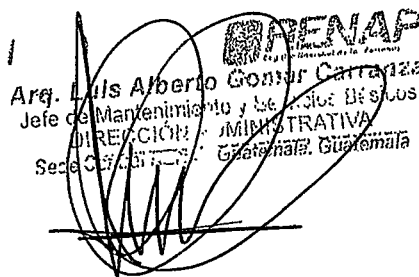 RENAP
Arq. Luis Alberto Gomar Carranza
Jefe de Mantenimiento y Servicios Básicos
DIRECCIÓN ADMINISTRATIVA
Guatemala, Guatemala